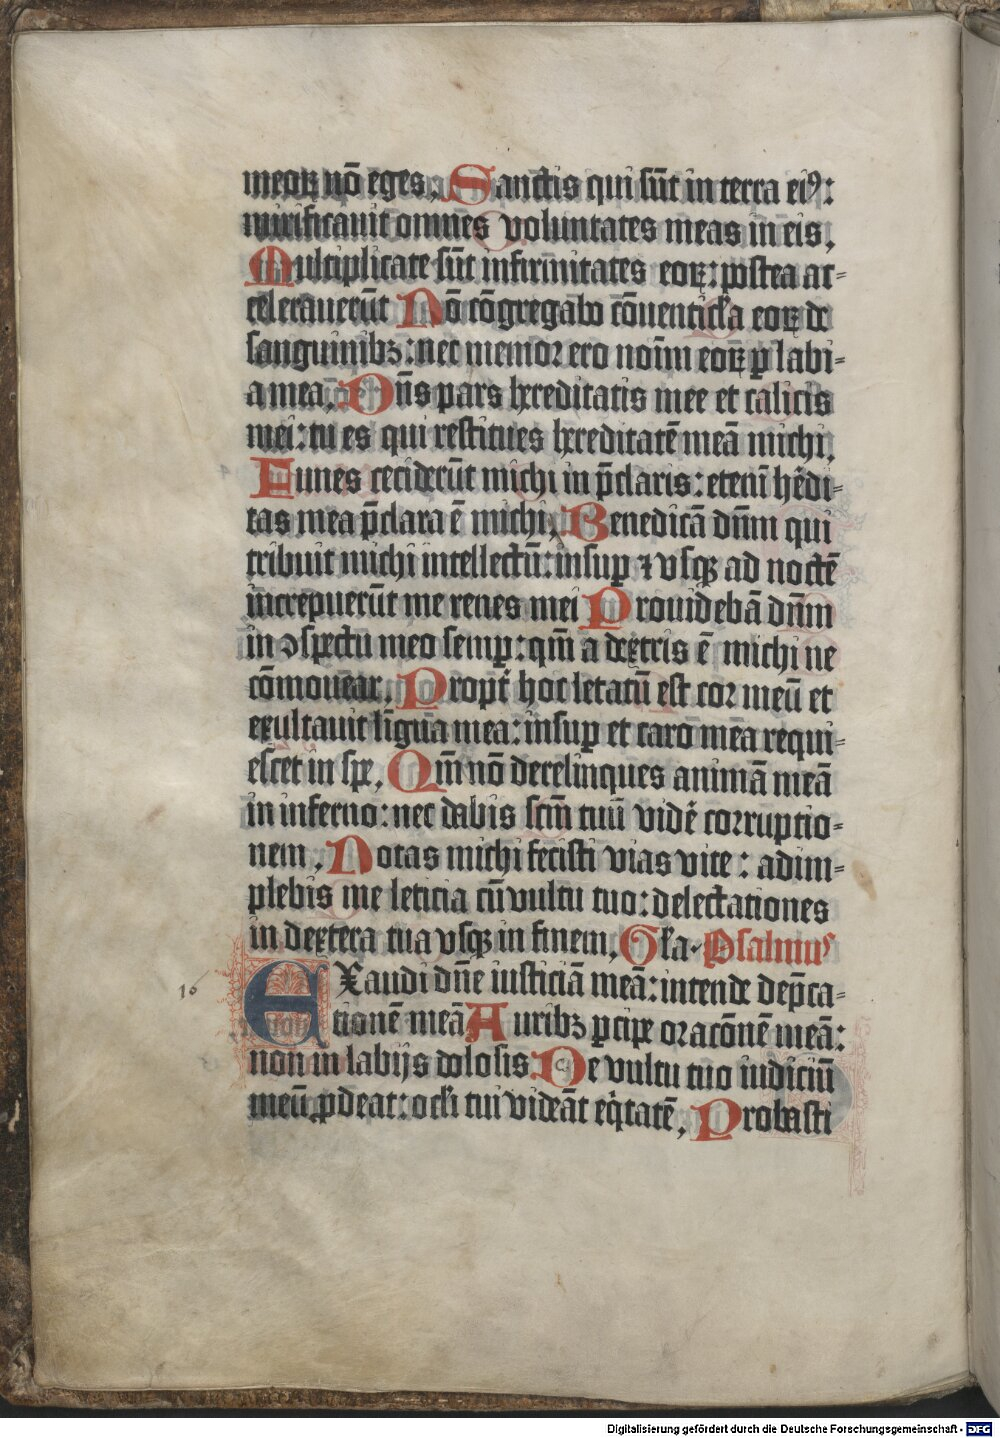 meoꝝ nō eges. Sanctis qui sūt in terra eiꝰ:
mirificauit omnes voluntates meas in eis.
Multiplicate sūt infirmitates eoꝝ: postea ac-
celerauerūt Nō cōgregabo cōuenticl̓a eoꝝ de
sanguinibꝫ: nec memor ero noīm eoꝝ ꝑ labi-
a mea. Dn̄s pars hereditatis mee et calicis
mei: tu es qui restitues hereditatē meā michi.
Funes ceciderūt michi in p̄claris: etenī he̓di-
tas mea p̄clara ē michi. Benedicā dn̄m qui
tribuit michi intellectū: insuꝑ ⁊ vsqꝫ ad noctē
increpuerūt me renes mei Prouidebā dn̄m
in ꝯspectu meo semꝑ: qm̄ a dextris ē michi ne
cōmouear. Propt̓ hoc letatū est cor meū et
exultauit lingua mea: insuꝑ et caro mea requi-
escet in spe. Qm̄ nō derelinques animā meā
in inferno: nec dabis scm̄ tuū vide̓ corruptio-
nem. Notas michi fecisti vias vite: adim-
plebis me leticia cū vultu tuo: delectationes
in dextera tua vsqꝫ in finem. Gl̓a. Psalmus
EXaudi dn̄e iusticiā meā: intende dep̄ca-
16
tionē meā Auribꝫ ꝑcipe oracōnē meā:
non in labijs dolosis. De vultu tuo iudiciū
meū ꝓdeat: ocl̓i tui videāt eq̓tatē. Probasti
Digitalisierung gefördert durch die Deutsche Forschungsgemeinschaft - DFG